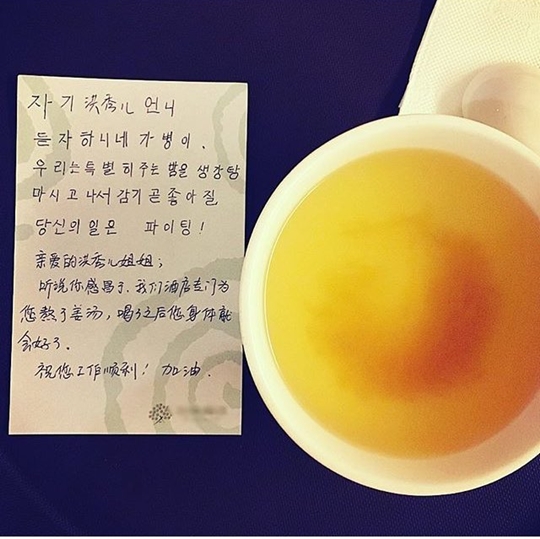 자기 洪秀儿 언니
듣자하니네가병이.
우리는특별히주는밤을 생강탕
마시고나서 감기 곧 좋아질
당신의일은 파이팅!
亲爱的洪秀儿姐姐;
听说你感冒了、我们酒店专门为
您熬了姜汤,喝了之后您身体就
会好了.
祝您工作顺利! 加油.